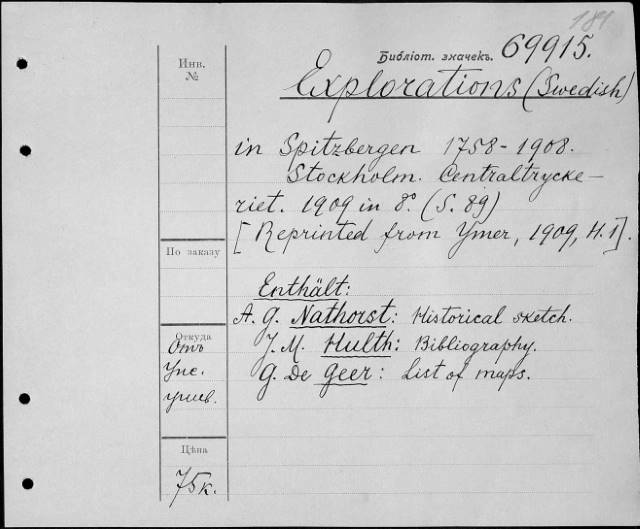 181
Библіот. значекъ. 69915.
Инв.
№
Explorations (Swedish)
in Spitzbergen 1758-1908.
Stockholm. Centraltrycke-
riet. 1909 in 8°. (S. 89)
[Reprinted from Ymer, 1909, H.1].
По заказу
Enthält:
A. G. Nathorst: Historical sketch.
J. M. Hulth: Bibliography.
G. De Geer: List of maps.
Откуда
Отъ
Упс.
унив.
Цѣна
75 к.